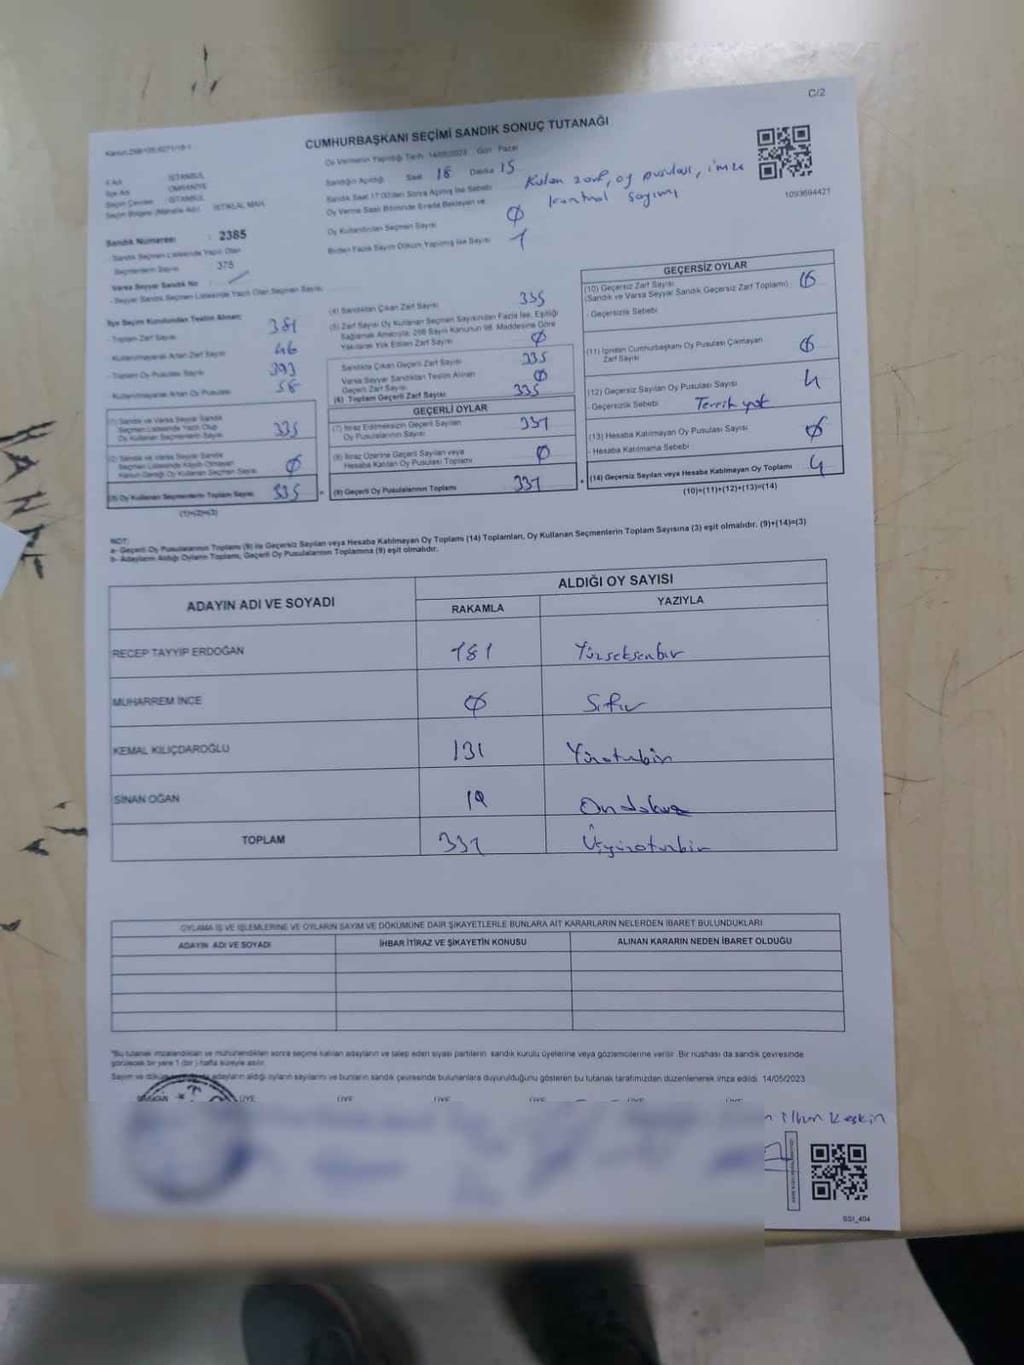 C/2
CUMHURBAŞKANI SEÇİMİ SANDIK SONUÇ TUTANAĞI
Oy Vermenin Yapıldığı Tarih 14/05/2023 Gün Pazar
1093694421
İl Adı : İSTANBUL
İlçe Adı : ÜMRANİYE
Seçim Çevresi : İSTANBUL
Seçim Bölgesi (Mahalle Adı) : İSTİKLAL MAH.
Sandık Numarası : 2385
Sandık Seçmen Listesinde Yazılı Olan
Seçmenlerin Sayısı 375
Varsa Seyyar Sandık No
Seyyar Sandık Seçmen Listesinde Yazılı Olan Seçmen Sayısı:
Sandığın Açıldığı Saat 18 Dakika 15
Sandık Saat 17.00'den Sonra Açılmış İse Sebebi Kulan zarf, oy pusulası, imza
kontrol sayımı
Oy Verme Saati Bitiminde Sırada Bekleyen ve
Oy Kullandırılan Seçmen Sayısı Ø
Birden Fazla Sayım Döküm Yapılmış İse Sayısı 1
İlçe Seçim Kurulundan Teslim Alınan:
Toplam Zarf Sayısı 381
Kullanılmayarak Artan Zarf Sayısı 46
Toplam Oy Pusulası Sayısı 393
Kullanılmayarak Artan Oy Pusulası 58
(1) Sandık ve Varsa Seyyar Sandık
Seçmen Listesinde Yazılı Olup
Oy Kullanan Seçmenlerin Sayısı 335
(2) Sandık ve Varsa Seyyar Sandık
Seçmen Listesinde Kaydı Olmayan
Kanun Gereği Oy Kullanan Seçmen Sayısı Ø
(3) Oy Kullanan Seçmenlerin Toplam Sayısı 335
(1)+(2)=(3)
(4) Sandıktan Çıkan Zarf Sayısı 335
(5) Zarf Sayısı Oy Kullanan Seçmen Sayısından Fazla İse, Eşitliği
Sağlamak Amacıyla; 298 Sayılı Kanunun 98. Maddesine Göre
Yakılarak Yok Edilen Zarf Sayısı Ø
Sandıkta Çıkan Geçerli Zarf Sayısı 335
Varsa Seyyar Sandıktan Teslim Alınan
Geçerli Zarf Sayısı Ø
(6) Toplam Geçerli Zarf Sayısı 335
GEÇERLİ OYLAR
(7) İtiraz Edilmeksizin Geçerli Sayılan
Oy Pusulalarının Sayısı 331
(8) İtiraz Üzerine Geçerli Sayılan veya
Hesaba Katılan Oy Pusulası Toplamı Ø
(9) Geçerli Oy Pusulalarının Toplamı 331
GEÇERSİZ OYLAR
(10) Geçersiz Zarf Sayısı
(Sandık ve Varsa Seyyar Sandık Geçersiz Zarf Toplamı) Ø
- Geçersizlik Sebebi
(11) İçinden Cumhurbaşkanı Oy Pusulası Çıkmayan
Zarf Sayısı Ø
(12) Geçersiz Sayılan Oy Pusulası Sayısı 4
- Geçersizlik Sebebi Tercih yok
(13) Hesaba Katılmayan Oy Pusulası Sayısı Ø
- Hesaba Katılmama Sebebi
(14) Geçersiz Sayılan veya Hesaba Katılmayan Oy Toplamı 4
(10)+(11)+(12)+(13)=(14)
NOT:
a- Geçerli Oy Pusulalarının Toplamı (9) ile Geçersiz Sayılan veya Hesaba Katılmayan Oy Toplamı (14) Toplamları, Oy Kullanan Seçmenlerin Toplam Sayısına (3) eşit olmalıdır. (9)+(14)=(3)
b- Adayların Aldığı Oyların Toplamı, Geçerli Oy Pusulalarının Toplamına (9) eşit olmalıdır.
ADAYIN ADI VE SOYADI
ALDIĞI OY SAYISI
RAKAMLA YAZIYLA
RECEP TAYYİP ERDOĞAN 181 Yüzseksenbir
MUHARREM İNCE Ø Sıfır
KEMAL KILIÇDAROĞLU 131 Yüzotuzbir
SİNAN OĞAN 19 Ondokuz
TOPLAM 331 Üçyüzotuzbir
OYLAMA İŞ VE İŞLEMLERİNE VE OYLARIN SAYIM VE DÖKÜMÜNE DAİR ŞİKAYETLERLE BUNLARA AİT KARARLARIN NELERDEN İBARET BULUNDUKLARI
ADAYIN ADI VE SOYADI İHBAR İTİRAZ VE ŞİKAYETİN KONUSU ALINAN KARARIN NEDEN İBARET OLDUĞU
*Bu tutanak imzalandıktan ve mühürlendikten sonra seçime katılan adayların ve talep eden siyasi partilerin sandık kurulu üyelerine veya gözlemcilerine verilir. Bir nüshası da sandık çevresinde
görülecek bir yere 1 (bir) hafta süreyle asılır.
Sayım ve döküm adayların aldığı oyların sayılarını ve bunların sandık çevresinde bulunanlara duyurulduğunu gösteren bu tutanak tarafımızdan düzenlenerek imza edildi. 14/05/2023
BAŞKAN ÜYE ÜYE ÜYE ÜYE ÜYE ÜYE
İlhan Keskin
SSI_404
HANDE